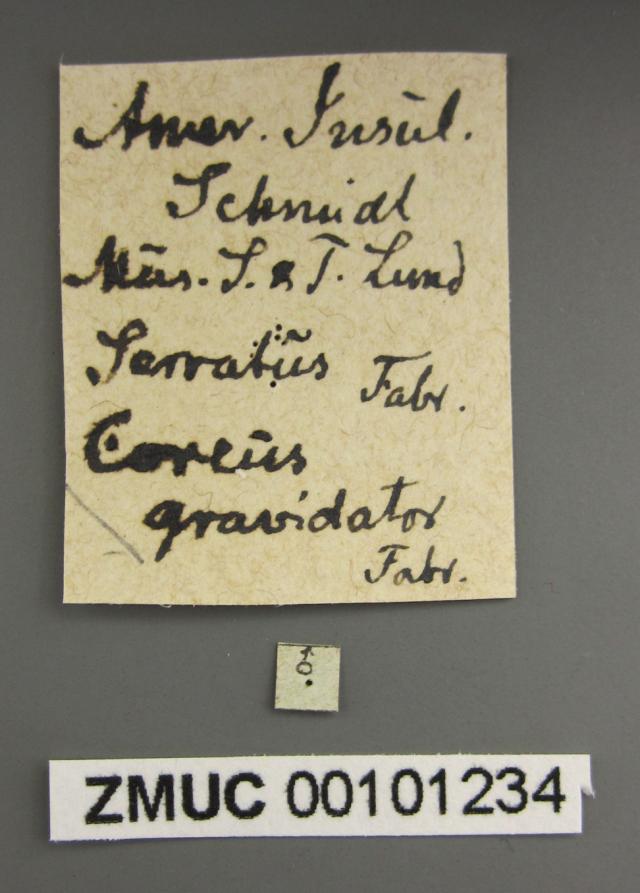 Amer. Insul.
Schmidt
Mus. S. & T. Lund
Serratus Fabr.
Coreus
gravidator
Fabr.
♂
ZMUC 00101234